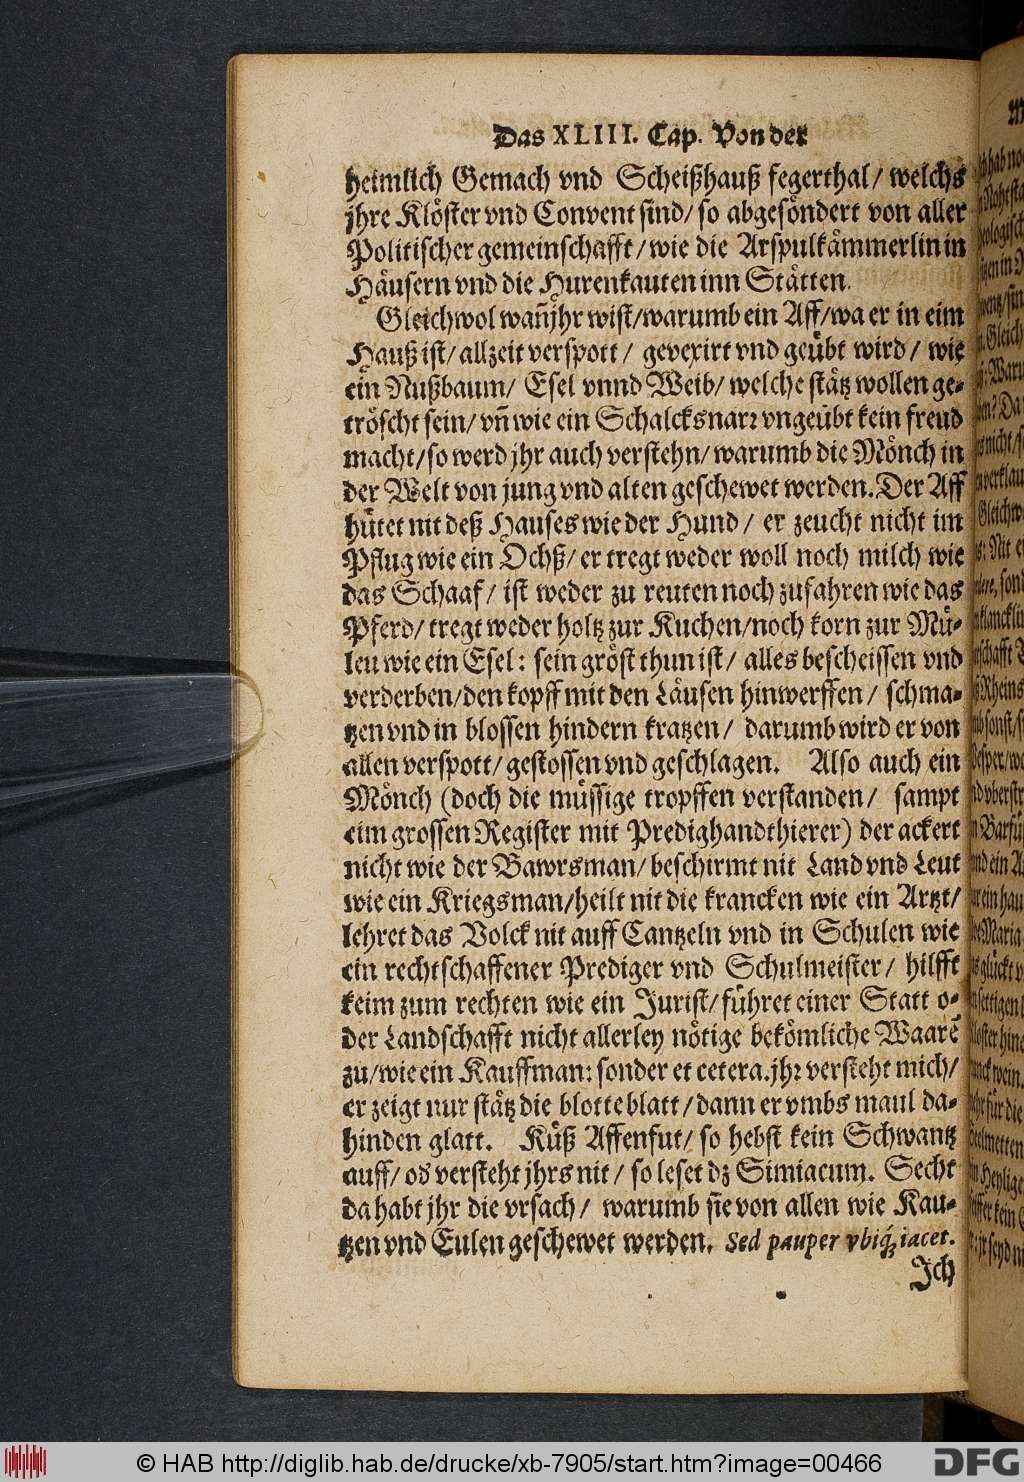 Das XLIII. Cap. Von der
heimlich Gemach vnd Scheißhauß fegerthal/ welchs
jhre Klöster vnd Convent sind/ so abgesöndert von aller
Politischer gemeinschafft/ wie die Arspulkämmerlin in
Häusern vnd die Hurenkauten inn Stätten.
Gleichwol wañ jhr wist/ warumb ein Aff/ wa er in eim
Hauß ist/ allzeit verspott/ gevexirt vnd geübt wird/ wie
ein Nußbaum/ Esel vnnd Weib/ welche stätz wollen ge-
tröscht sein/ vñ wie ein Schalcksnarr vngeübt kein freud
macht/ so werd jhr auch verstehn/ warumb die Mönch in
der Welt von jung vnd alten geschewet werden. Der Aff
hütet nit deß Hauses wie der Hund/ er zeucht nicht im
Pflug wie ein Ochß/ er tregt weder woll noch milch wie
das Schaaf/ ist weder zu reuten noch zufahren wie das
Pferd/ tregt weder holtz zur Kuchen/ noch korn zur Mü-
leu wie ein Esel: sein gröst thun ist/ alles bescheissen vnd
verderben/ den kopff mit den Läusen hinwerffen/ schma-
tzen vnd in blossen hindern kratzen/ darumb wird er von
allen verspott/ gestossen vnd geschlagen. Also auch ein
Mönch (doch die müssige tropffen verstanden/ sampt
eim grossen Register mit Predighandthierer) der ackert
nicht wie der Bawrsman/ beschirmt nit Land vnd Leut
wie ein Kriegsman/ heilt nit die krancken wie ein Artzt/
lehret das Volck nit auff Cantzeln vnd in Schulen wie
ein rechtschaffener Prediger vnd Schulmeister/ hilfft
keim zum rechten wie ein Jurist/ führet einer Statt o-
der Landschafft nicht allerley nötige bekömliche Waarẽ
zu/ wie ein Kauffman: sonder et cetera. jhr versteht mich/
er zeigt nur stätz die blotteblatt/ dann er vmbs maul da-
hinden glatt. Küß Affenfut/ so hebst kein Schwantz
auff/ ob versteht jhrs nit/ so leset dz Simiacum. Secht
da habt jhr die vrsach/ warumb sie von allen wie Kau-
tzen vnd Eulen geschewet werden. Sed pauper vbiq́; iacet.
Ich
© HAB http://diglib.hab.de/drucke/xb-7905/start.htm?image=00466
DFG